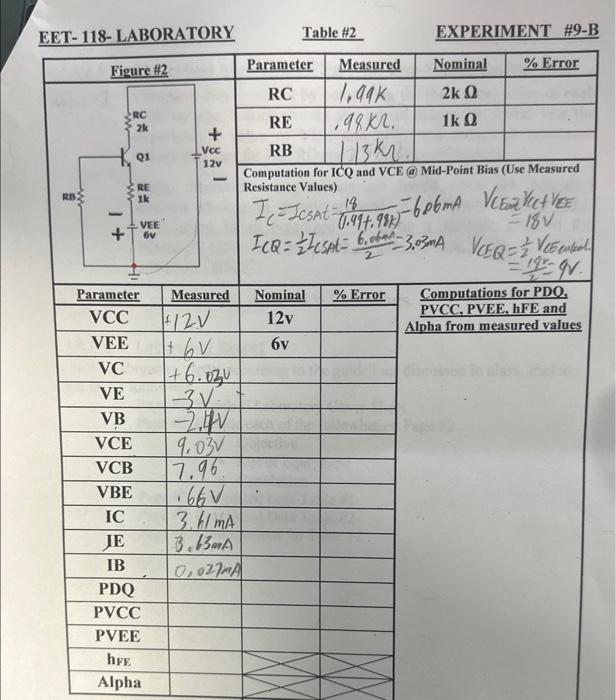 EET- 118- LABORATORY Table #2 EXPERIMENT #9-B
Figure #2 Parameter Measured Nominal % Error
RC 1.99K 2k Ω
RE .98KΩ. 1k Ω
RB 113KΩ
RC
2k
+
Vcc
12v
Q1
RB
RE
1k
VEE
6v
+
Computation for ICQ and VCE @ Mid-Point Bias (Use Measured
Resistance Values)
IC=ICSAt= 18/(1.99+.98k) =6.06mA VCEoff VCC+VEE
= 18V
ICQ = 1/2 ICSAt= 6.06mA/2 =3.03mA VCEQ= 1/2 VCEcutout.
= 18v/2 =9V.
Parameter Measured Nominal % Error Computations for PDQ,
PVCC, PVEE, hFE and
Alpha from measured values
VCC +12V 12v
VEE +6V 6v
VC +6.03V
VE -3V
VB -2.4V
VCE 9.03V
VCB 7.96
VBE .66V
IC 3.61mA
IE 3.63mA
IB 0.027mA
PDQ
PVCC
PVEE
hFE
Alpha